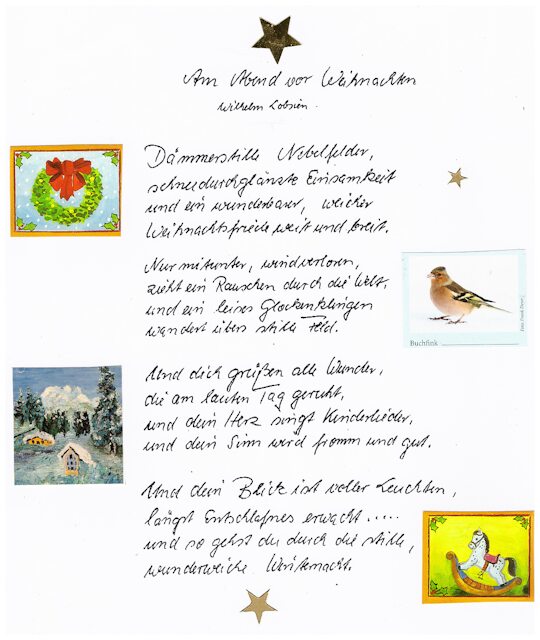 Am Abend vor Weihnachten
Wilhelm Lobsien.
Dämmerstille Nebelfelder,
schneedurchglänzte Einsamkeit
und ein wunderbarer, weicher
Weihnachtsfriede weit und breit.
Nur mitunter, windverloren,
zieht ein Rauschen durch die Welt,
und ein leises Glockenklingen
wandert übers stille Feld.
Buchfink
Und dich grüßen alle Wunder,
die am lauten Tag geruht,
und dein Herz singt Kinderlieder,
und dein Sinn wird fromm und gut.
Und dein Blick ist voller Leuchten,
längst Entschlafnes erwacht.....
und so gehst du durch die stille,
wunderweiche Winternacht.